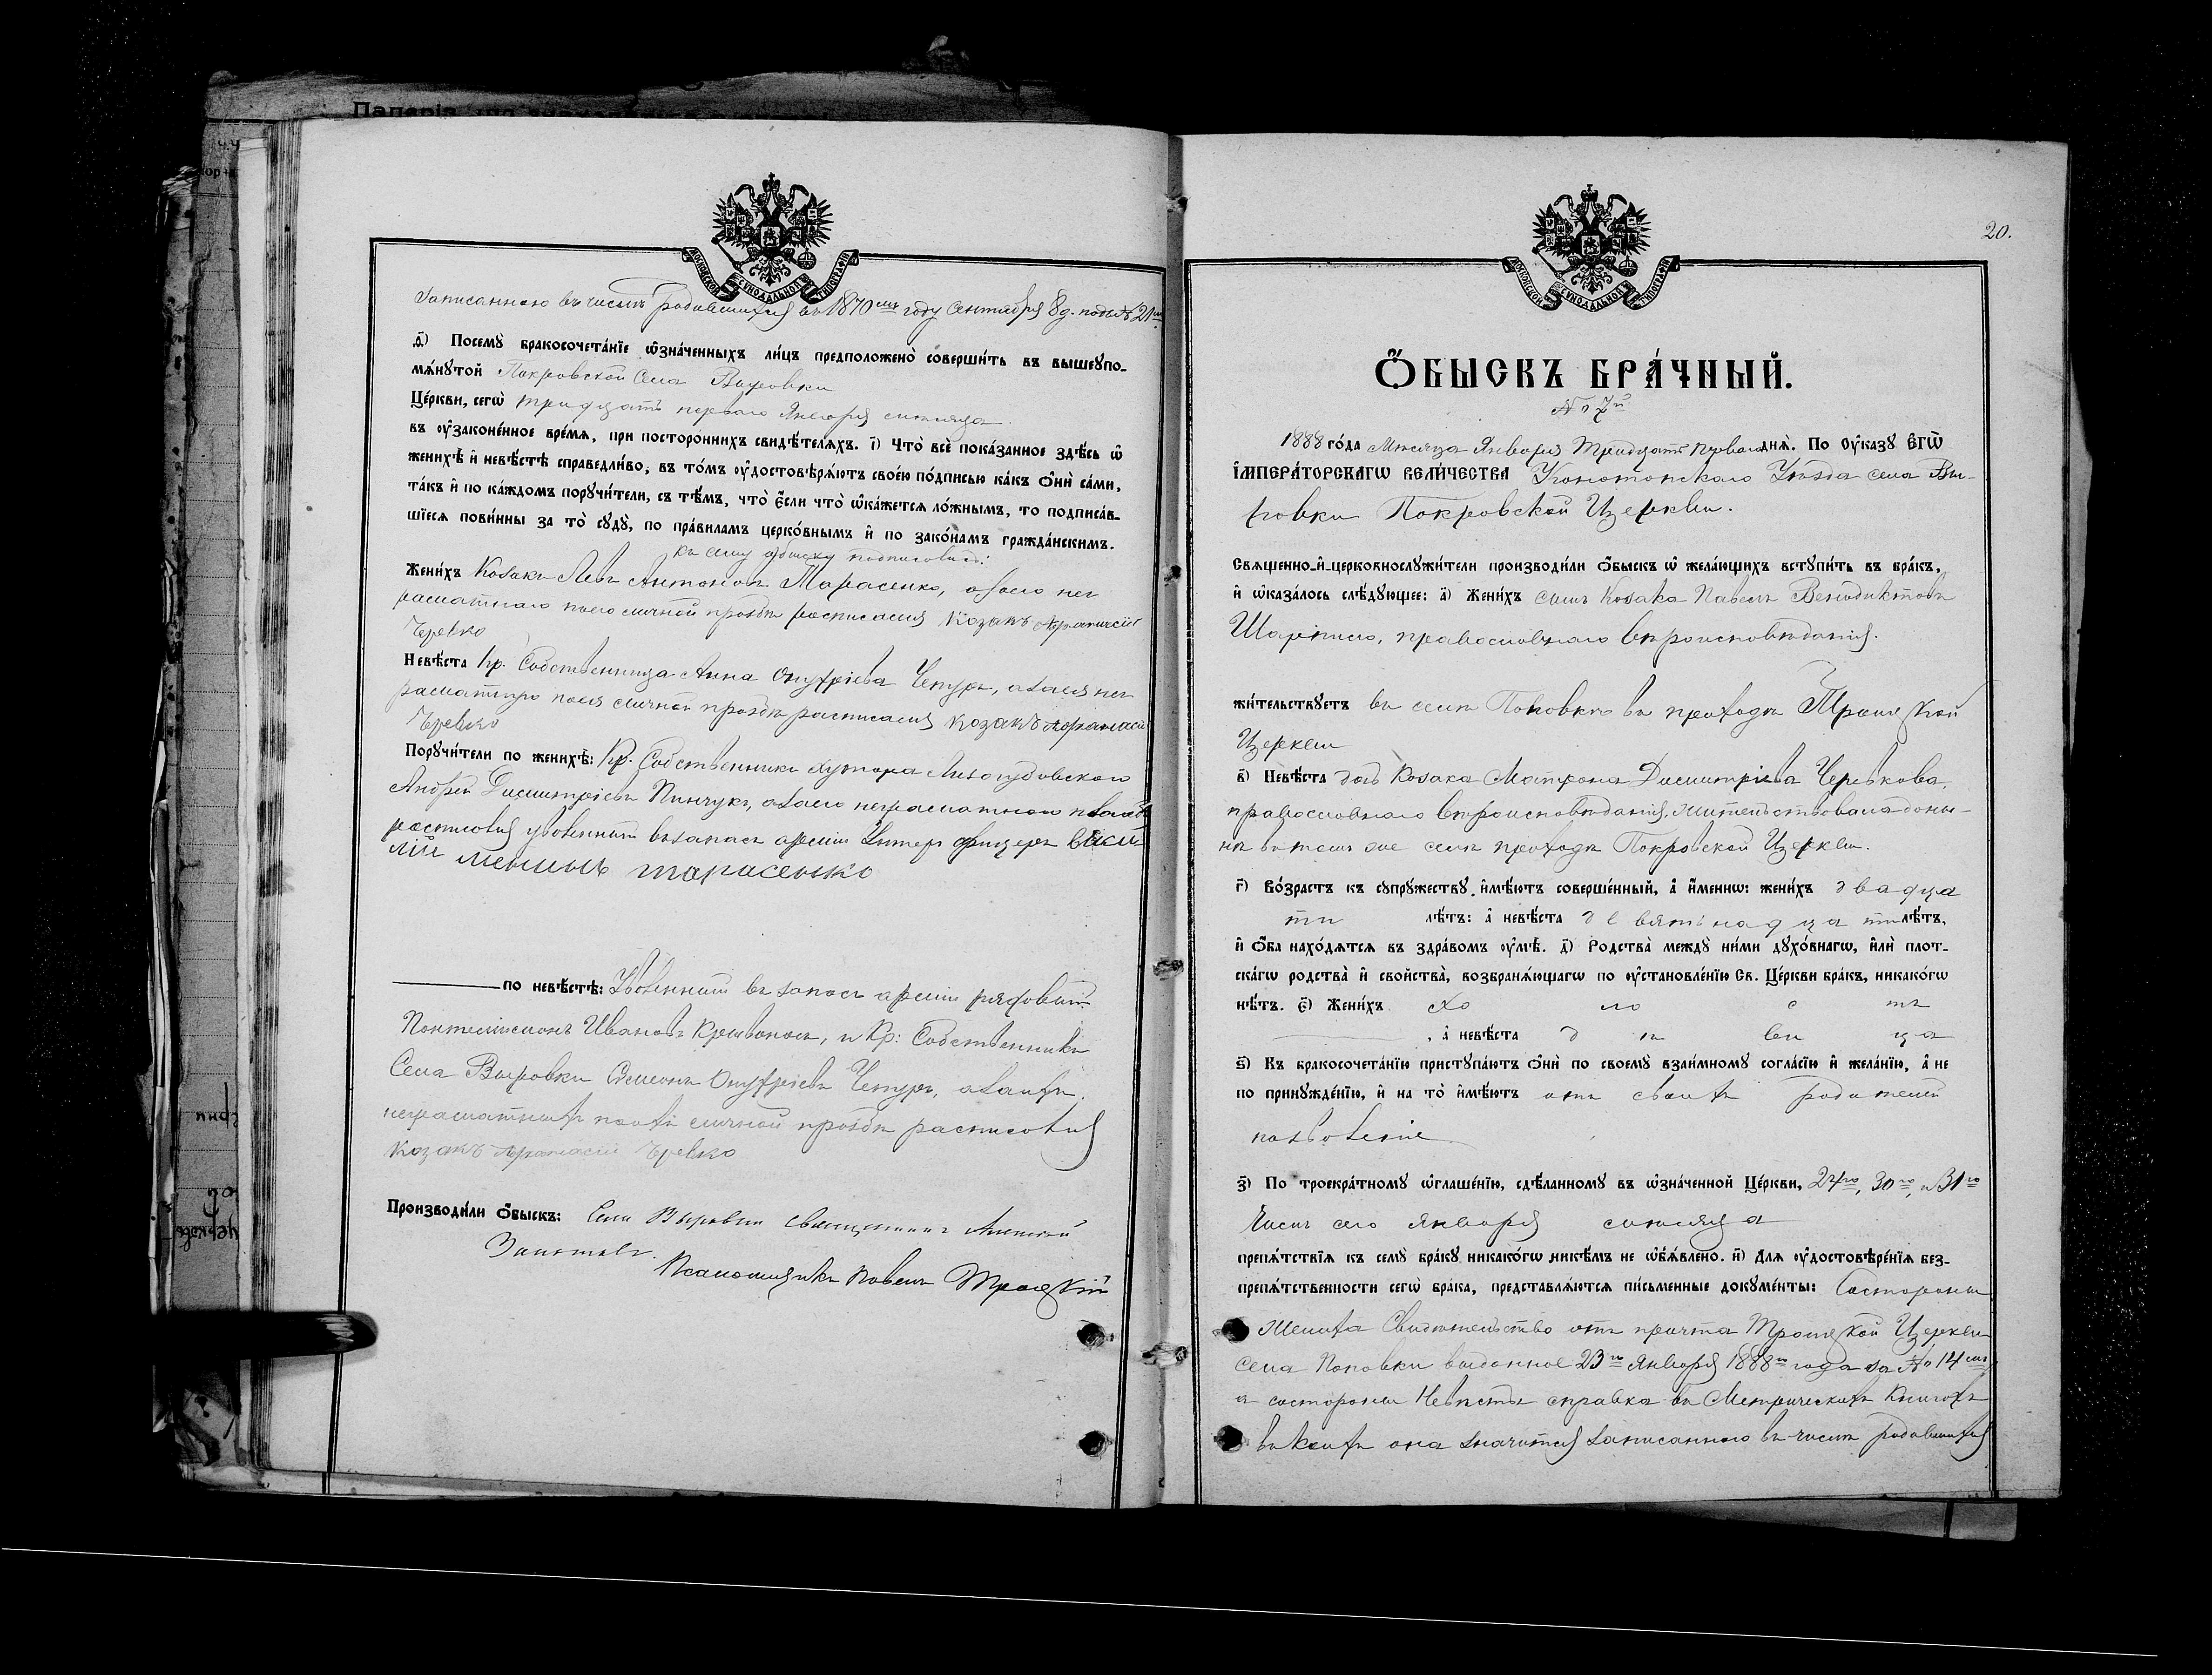 Папѣріа
Московской Сѵнодальной Типографіи
Записанною въ числѣ родившихся въ 1870мъ году Сентября 8 д. подъ № 21мъ
Посемꙋ бракосочета́нїе ѡ҆зна́ченныхъ ли́цъ предположено̀ соверши́ть въ вышеꙋпо-
мѧ́нꙋтой Покровской Села Выровки
Це́ркви, сегѡ̀ тридцать перваго Января мѣсяца.
въ ᲂу҆законе́нное вре́мѧ, при посторо́ннихъ свидѣ́телѧхъ. і҃) Что̀ всѐ пока́занное здѣ́сь ѡ҆
женихѣ̀ и҆ невѣ́стѣ справедли́во, въ то́мъ ᲂу҆достовѣрѧ́ютъ свое́ю по́дписью ка́къ ѻ҆нѝ са́ми,
та́къ и҆ по ка́ждомъ порꙋчи́тели, съ тѣ́мъ, что̀ є҆́сли что̀ ѡ҆ка́жетсѧ ло́жнымъ, то подписа́в-
шїесѧ пови́нны за то̀ сꙋдꙋ̀, по пра́виламъ церко́внымъ и҆ по зако́намъ гражда́нскимъ.
къ сему обыску подписались:
Жени́хъ Козакъ Левъ Антоновъ Тарасенко, а за него не
грамотнаго по его личной прозьбѣ росписался козакъ Афанасій
Черевко
Невѣ́ста Кр. Собственница Анна Онуфріева Чепуръ, а за нея не
грамотную по ея личной прозьбѣ расписался козакъ Афанасій
Черевко
Порꙋчи́тели по женихѣ̀: Кр. Собственникъ хутора
Андрей Димитріевъ Пинчукъ, а за него неграмотнаго и за себя
росписовся уволенный въ запасъ арміи Унтеръ офицеръ Васи
лий тарасенко
по невѣ́стѣ: Уволенный въ запасъ арміи рядовый
Понтелиимонъ Ивановъ Кривоносъ, и Кр: Собственникъ
Села Выровки Симеонъ Онуфріевъ Чепуръ, а за нихъ
неграмотныхъ по ихъ личной прозьбѣ расписовся
Козакъ Афанасій Черевко
Производи́ли ѻ҆́быскъ: Села Выровки священникъ Алексѣй
Псаломщикъ Павелъ Троицкій
20.
Московской Сѵнодальной Типографіи
Ѻ҆́БЫСКЪ БРА́ЧНЫЙ.
№ 7й
1888 го́да Мѣсяца Января Тридцать Перваго днѧ̀. По Оу҆ка́зꙋ Є҆гѡ̀
І҆мпера́торскагѡ Вели́чества Конотопскаго Уѣзда села Вы-
ровки Покровской Церкви.
Свѧщенно-и҆-церковнослꙋжи́тели производи́ли ѻ҆́быскъ ѡ҆ жела́ющихъ встꙋпи́ть въ бра́къ,
и҆ ѡ҆каза́лось слѣ́дꙋющее: а҃) Жени́хъ сынъ Козака Павелъ Венедиктовъ
православнаго вѣроисповѣданія.
жи́тельствꙋетъ въ селѣ Поповкѣ въ приходѣ Троицкой
Церкви
в҃) Невѣ́ста дочь Козака Матрона Димитріева Черевкова,
православнаго вѣроисповѣданія, жительствовала доны-
нѣ въ томъ же селѣ приходѣ Покровской Церкви.
г҃) Во́зрастъ къ сꙋпрꙋ́жествꙋ и҆мѣ́ютъ соверше́нный, а҆ и҆́меннѡ: жени́хъ двадца
ти лѣ́тъ: а҆ невѣ́ста девятнадцати лѣ́тъ,
и҆ ѻ҆́ба нахо́дѧтсѧ въ здра́вомъ ᲂу҆мѣ̀. д҃) Родства̀ междꙋ̀ ни́ми дꙋхо́внагѡ, и҆лѝ плот-
ска́гѡ родства̀ и҆ свойства̀, возбранѧ́ющагѡ по ᲂу҆становле́нїю Св. Це́ркви бра́къ, никако́гѡ
нѣ́тъ. є҃) Жени́хъ холостъ
, а҆ невѣ́ста дѣвица
ѕ҃) Къ бракосочета́нїю пристꙋпа́ютъ ѻ҆нѝ по своемꙋ̀ взаи́мномꙋ согла́сїю и҆ жела́нїю, а҆ не
по принꙋжде́нїю, и҆ на то̀ и҆мѣ́ютъ отъ своихъ родителей
позволеніе
з҃) По троекра́тномꙋ ѡ҆глаше́нїю, сдѣ́ланномꙋ въ ѡ҆зна́ченной Це́ркви, 24го, 30го, и 31го
Числъ сего Января мѣсяца
препѧ́тствїѧ къ семꙋ̀ бра́кꙋ никако́гѡ никѣ́мъ не ѡ҆б̾ѧ́влено. и҃) Длѧ ᲂу҆достовѣре́нїѧ без-
препѧ́тственности сегѡ̀ бра́ка, представлѧ́ютсѧ пи́сьменные докꙋме́нты: Состороны
Жениха Свидѣтельство отъ причта Троицкой Церкви
села Поповки выданное 23го Января 1888го года за № 14мъ
а состороны Невѣсты справка въ Метрическихъ Книгахъ
въ коихъ она значится записанною въ числѣ родившихся